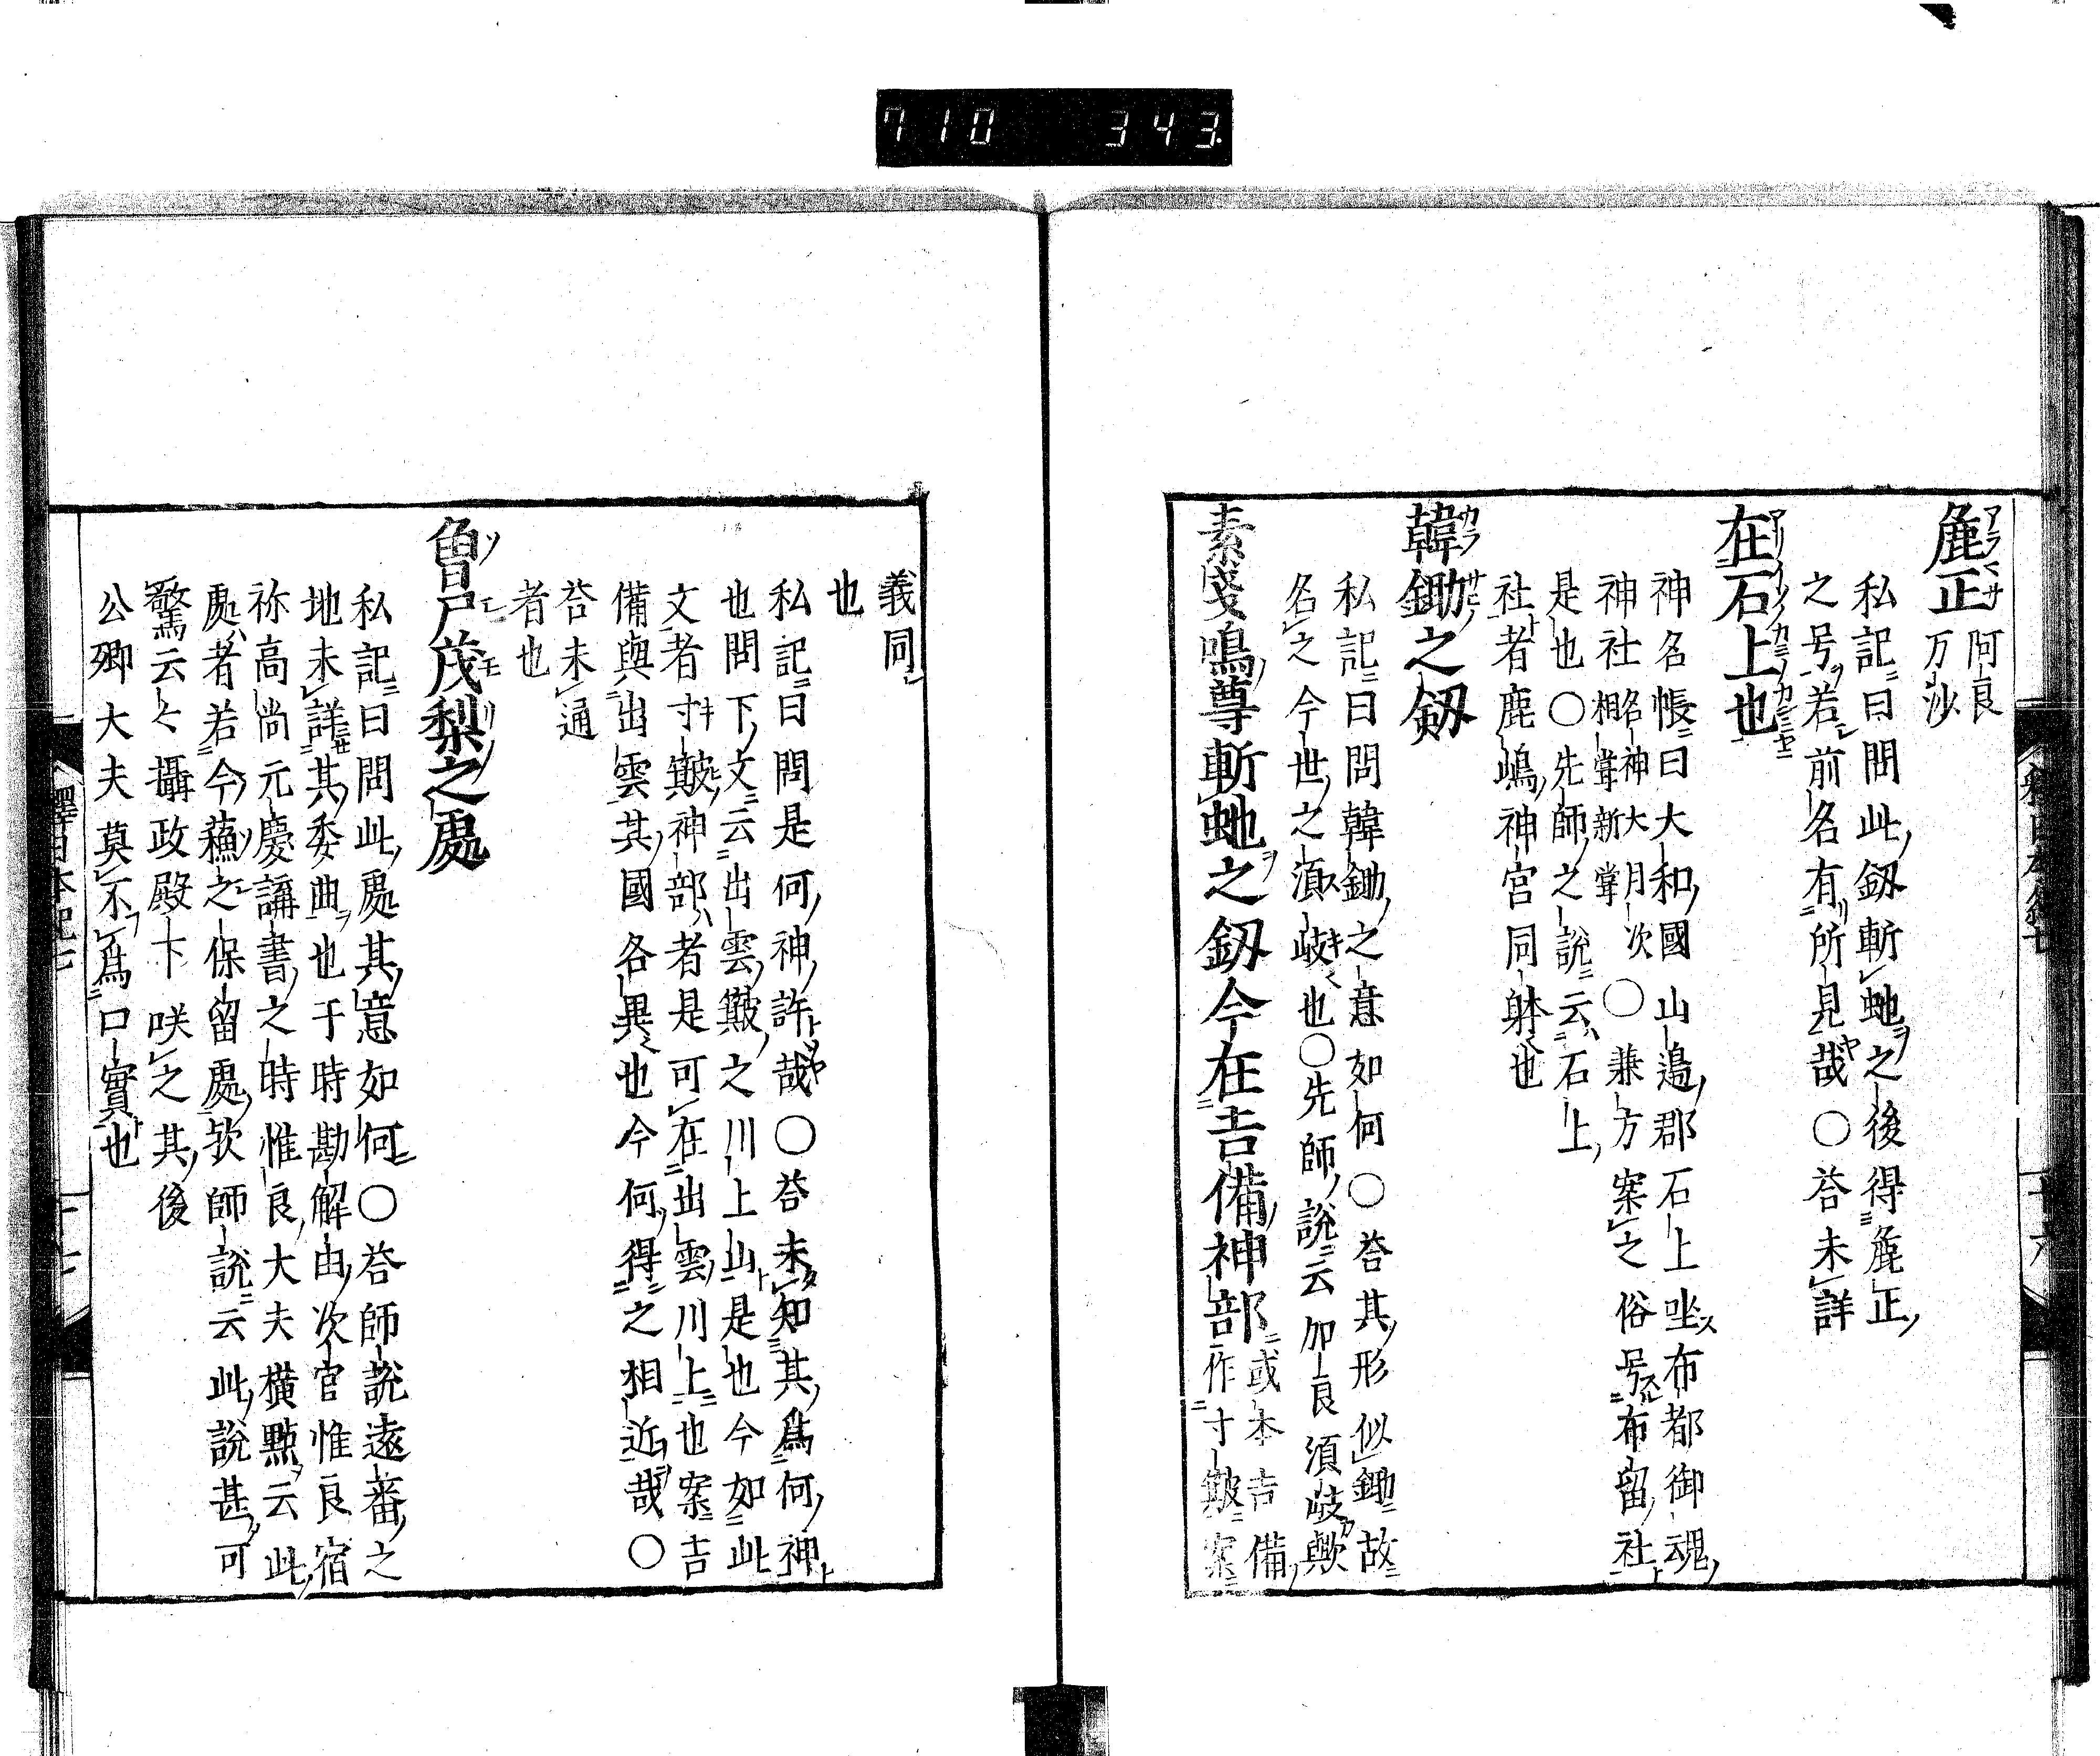 710 343
麁正 阿良
万沙
私記曰問此劔斬虵之後得麁正
之号若前名有所見哉○荅未詳
在石上也
神名帳曰大和國山邉郡石上坐布都御魂
神社 名神大月次
相嘗新嘗 ○兼方案之俗号布留社
是也○先師之説云石上
社者鹿嶋神宮同躰也
韓鋤之劔
私記曰問韓鋤之意如何○荅其形似鋤故
名之今世之湏岐也○先師説云加良湏岐歟
素戔嗚尊斬虵之劔今在吉備神部 或本吉備
作寸簸案
義同
也
私記曰問是何神許哉○荅未知其爲何神
也問下文云出雲簸之川上山是也今如此
文者寸簸神部者是可在出雲川上也案吉
備與出雲其國各異也今何得之相近哉○
荅未通
者也
曽尸茂梨之處
私記曰問此處其意如何○荅師説遠蕃之
地未詳其委曲也于時勘解由次官惟良宿
祢高尚元慶講書之時惟良大夫横點云此
處者若今蘓之保留處欤師説云此説甚可
驚云々攝政殿下咲之其後
公卿大夫莫不爲口實也
釋日本紀七
十七